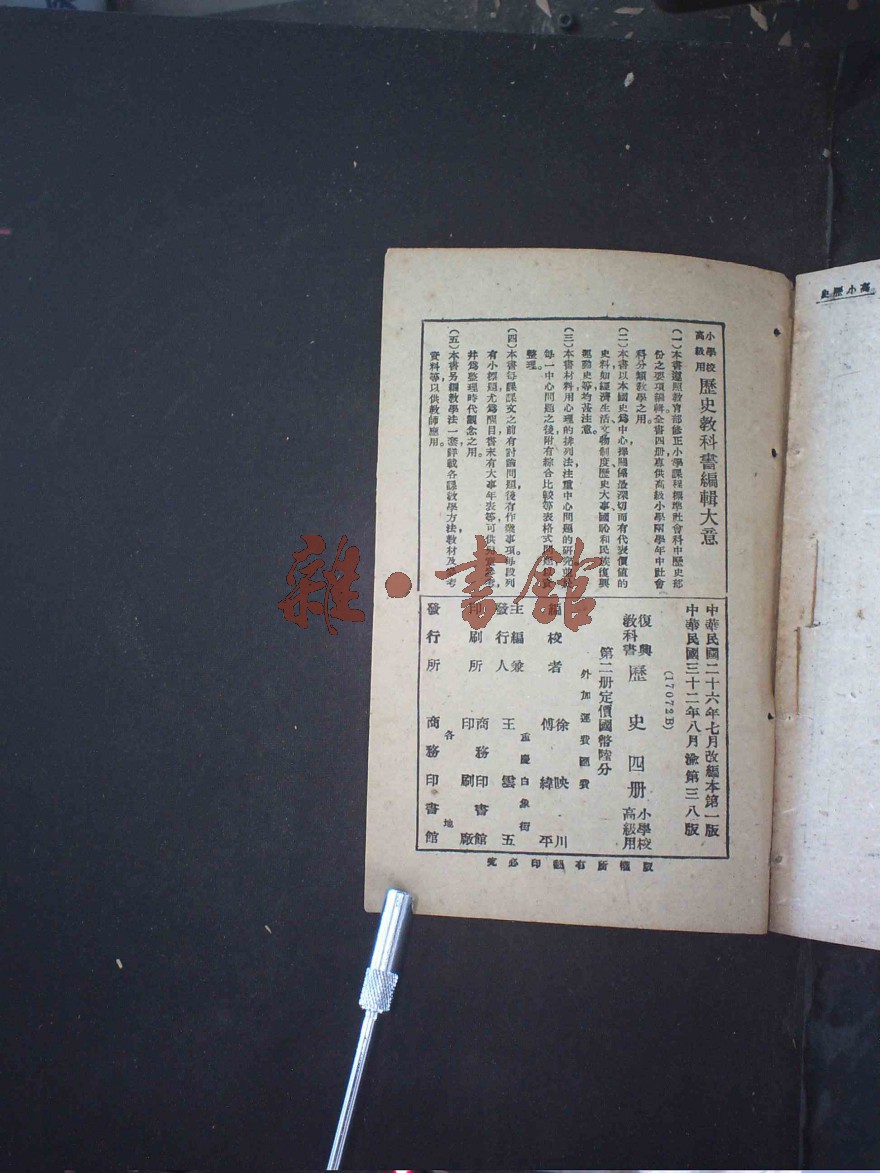 高小歷史
小學校
高級用
歷史教科書編輯大意
(一)本書遵照教育部修正小學課程標準社會科中歷史部
份之要項編輯全書四册專供高級小學兩學年中社會
科分類教學之用。
(二)本書以本國史爲中心,擇關係最深切而有代表價值的
史料,如經濟生活、文物制度、歷史大事、國恥和民族復興
運動史等均甚注意。
(三)本書材料用心理的排列法,注重中心問題的研究
每一中心問題之後附有綜合比較等表格式問題
整理。
(四)本書每課課文之前有討論問題,後有作業事項每段列
有小標題尤爲醒目,書末有大事年表等可供
幷爲整理時代觀念之用。
(五)本書另編教學法一套,詳載各課教學方法、教材及參考
資料等,以供教師應用。
中華民國二十六年七月改編本第一版
中華民國三十二年八月渝第三八版
(17072B)
復興
教科書
歷史四册
小學校
高級用
第二册定價國幣陸分
外加運費匯費
編校者
徐映川
傅緯平
主編兼
發行人
重慶白象街
王雲五
印刷所
商務印書館
印刷廠
發行所
各地
商務印書館
版權所有翻印必究
雜·書館